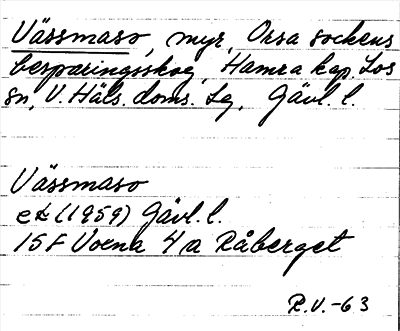 Vässmaso, myr, Orsa sockens
besparingsskog, Hamra kap. Los
sn, V. Häls. doms. lg, Gävl. l.
Vässmaso
ek (1959) Gävl. l.
15F Voxna 4a Råberget
R.V.-63